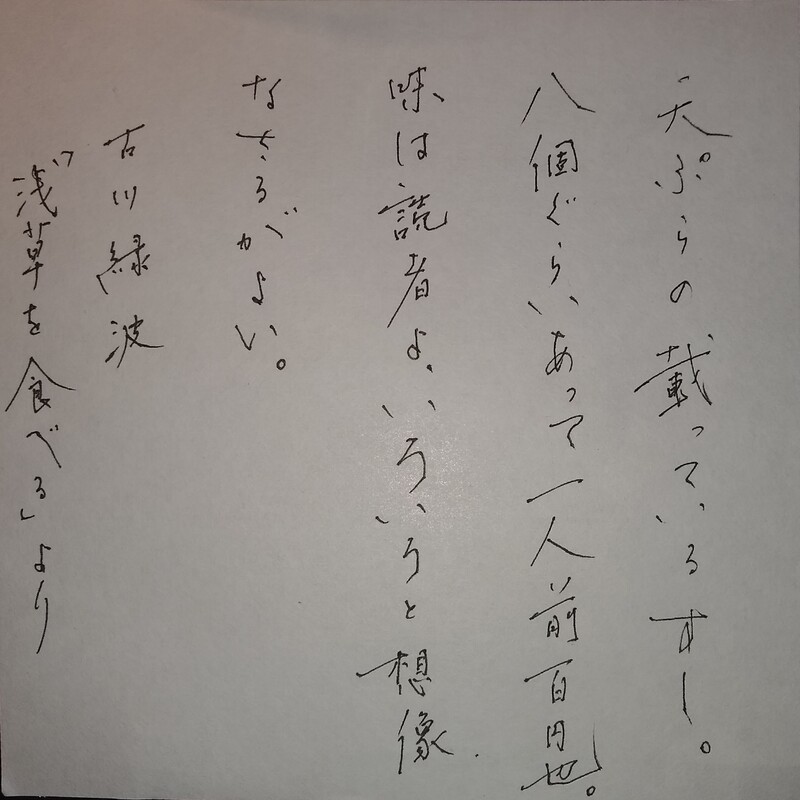 天ぷらの載っているすし。
八個ぐらいあって一人前百円也。
味は読者よ、いろいろと想像
なさるがよい。
古川緑波
「浅草を食べる」より